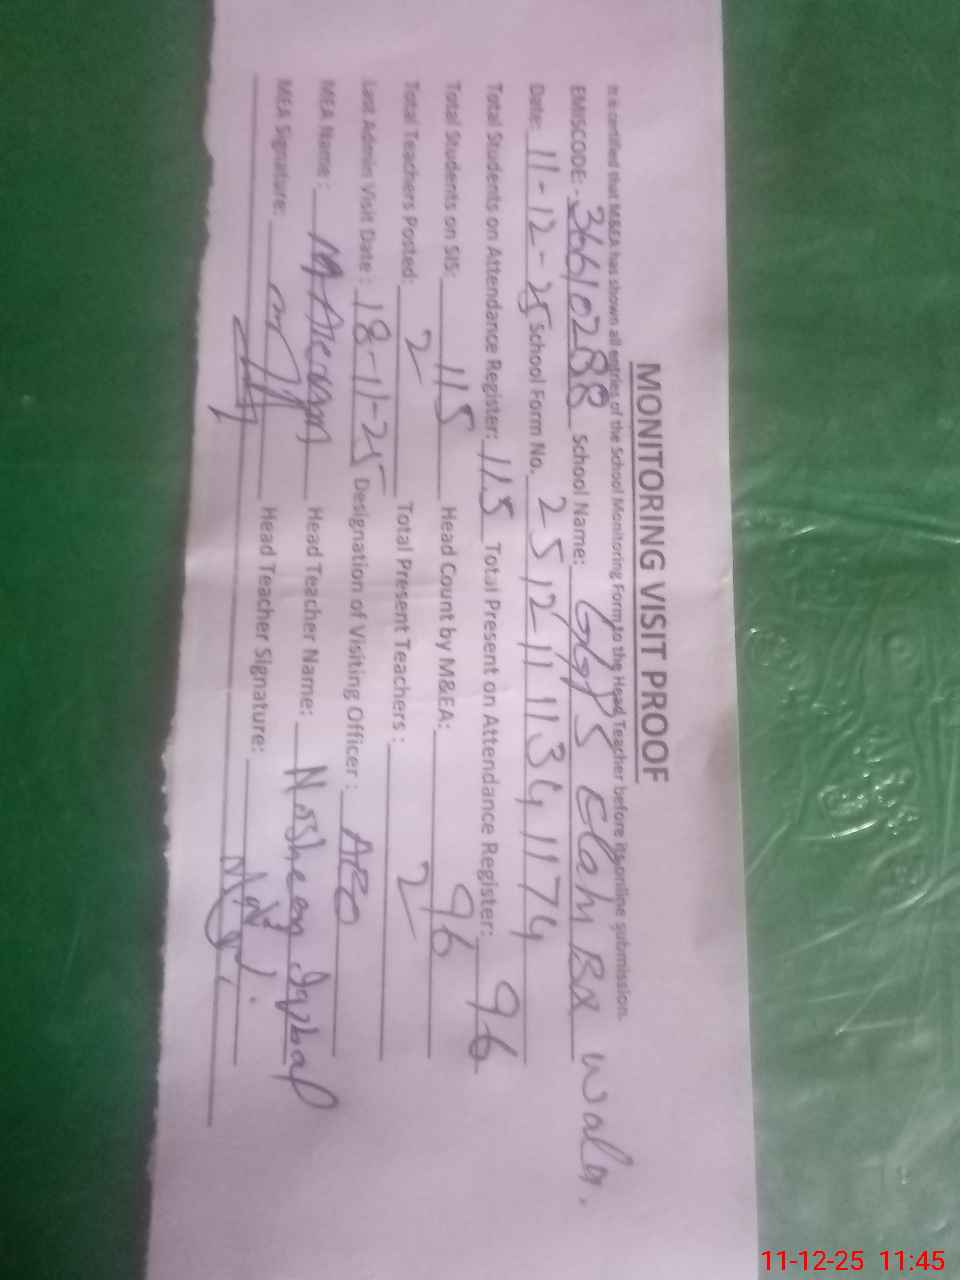 MONITORING VISIT PROOF
It is certified that M&EA has shown all entries of the School Monitoring Form to the Head Teacher before its online submission.
EMISCODE: - 36610288 School Name: GGPS Elahi BX wala.
Date: 11-12-25 School Form No. 25121111341174
Total Students on Attendance Register: 115 Total Present on Attendance Register: 96
Total Students on SIS: 115 Head Count by M&EA: 96
Total Teachers Posted: 2 Total Present Teachers : 2
Last Admin Visit Date : 18-11-25 Designation of Visiting Officer : AEO
MEA Name : Head Teacher Name: Nosheen Iqbal
MEA Signature: Head Teacher Signature:
11-12-25 11:45